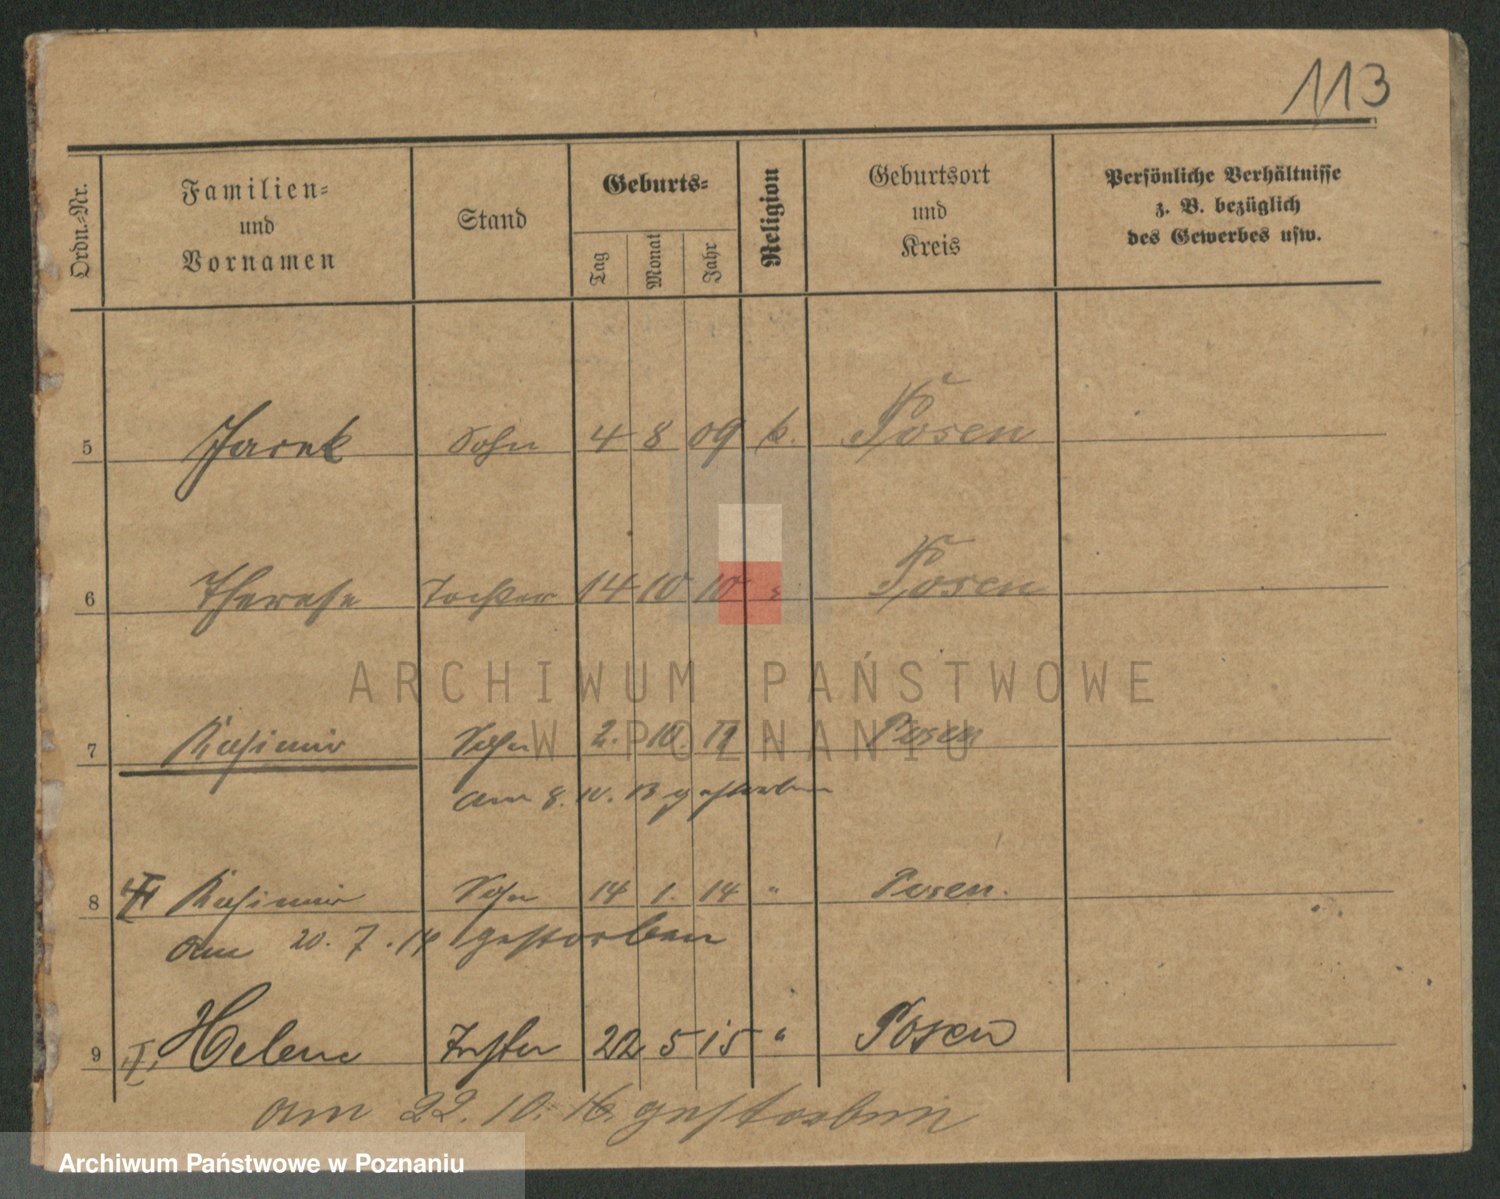 113
Ordn.-Nr.
Familien-
und
Vornamen
Stand
Geburts-
Tag
Monat
Jahr
Religion
Geburtsort
und
Kreis
Persönliche Verhältnisse
z. B. bezüglich
des Gewerbes usw.
5 Sohn 4 8 09 k. Posen
6 Therese Tochter 14 10 10 " Posen
ARCHIWUM PAŃSTWOWE
W POZNANIU
7 Kasimir Sohn 2. 10. Posen
am 8. 10. 13 gestorben
8 Kasimir Sohn 14 1. 14 " Posen.
am 20. 7. 14 gestorben
9 Helene Tochter 22 5 15 " Posen
am 22. 10. 16 gestorben
Archiwum Państwowe w Poznaniu